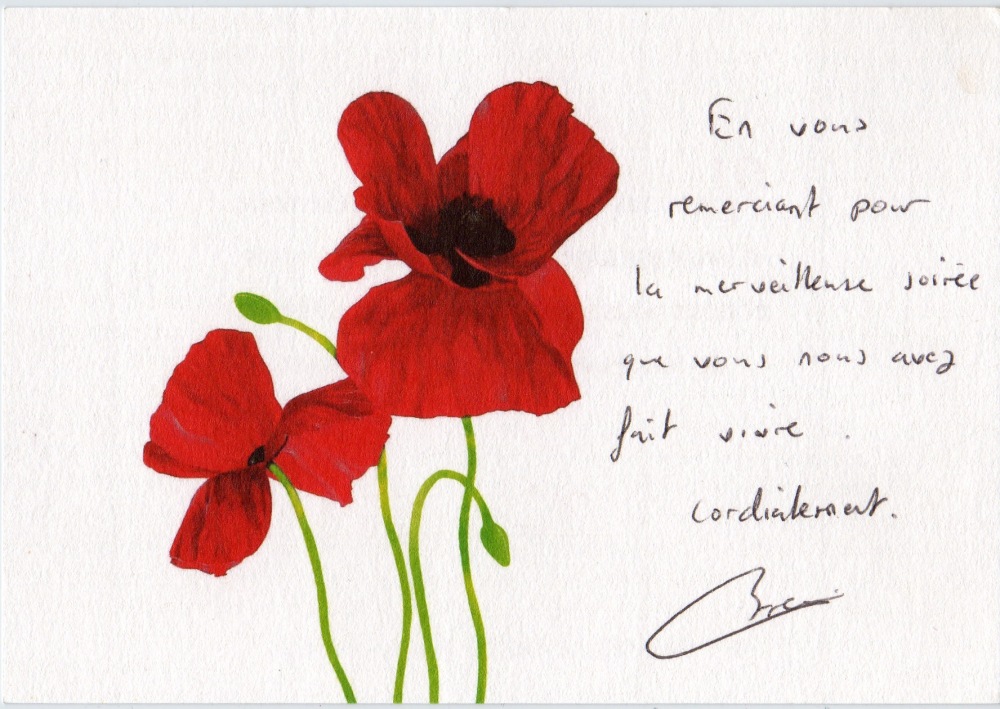 En vous
remerciant pour
la merveilleuse soirée
que vous nous avez
fait vivre.
Cordialement.